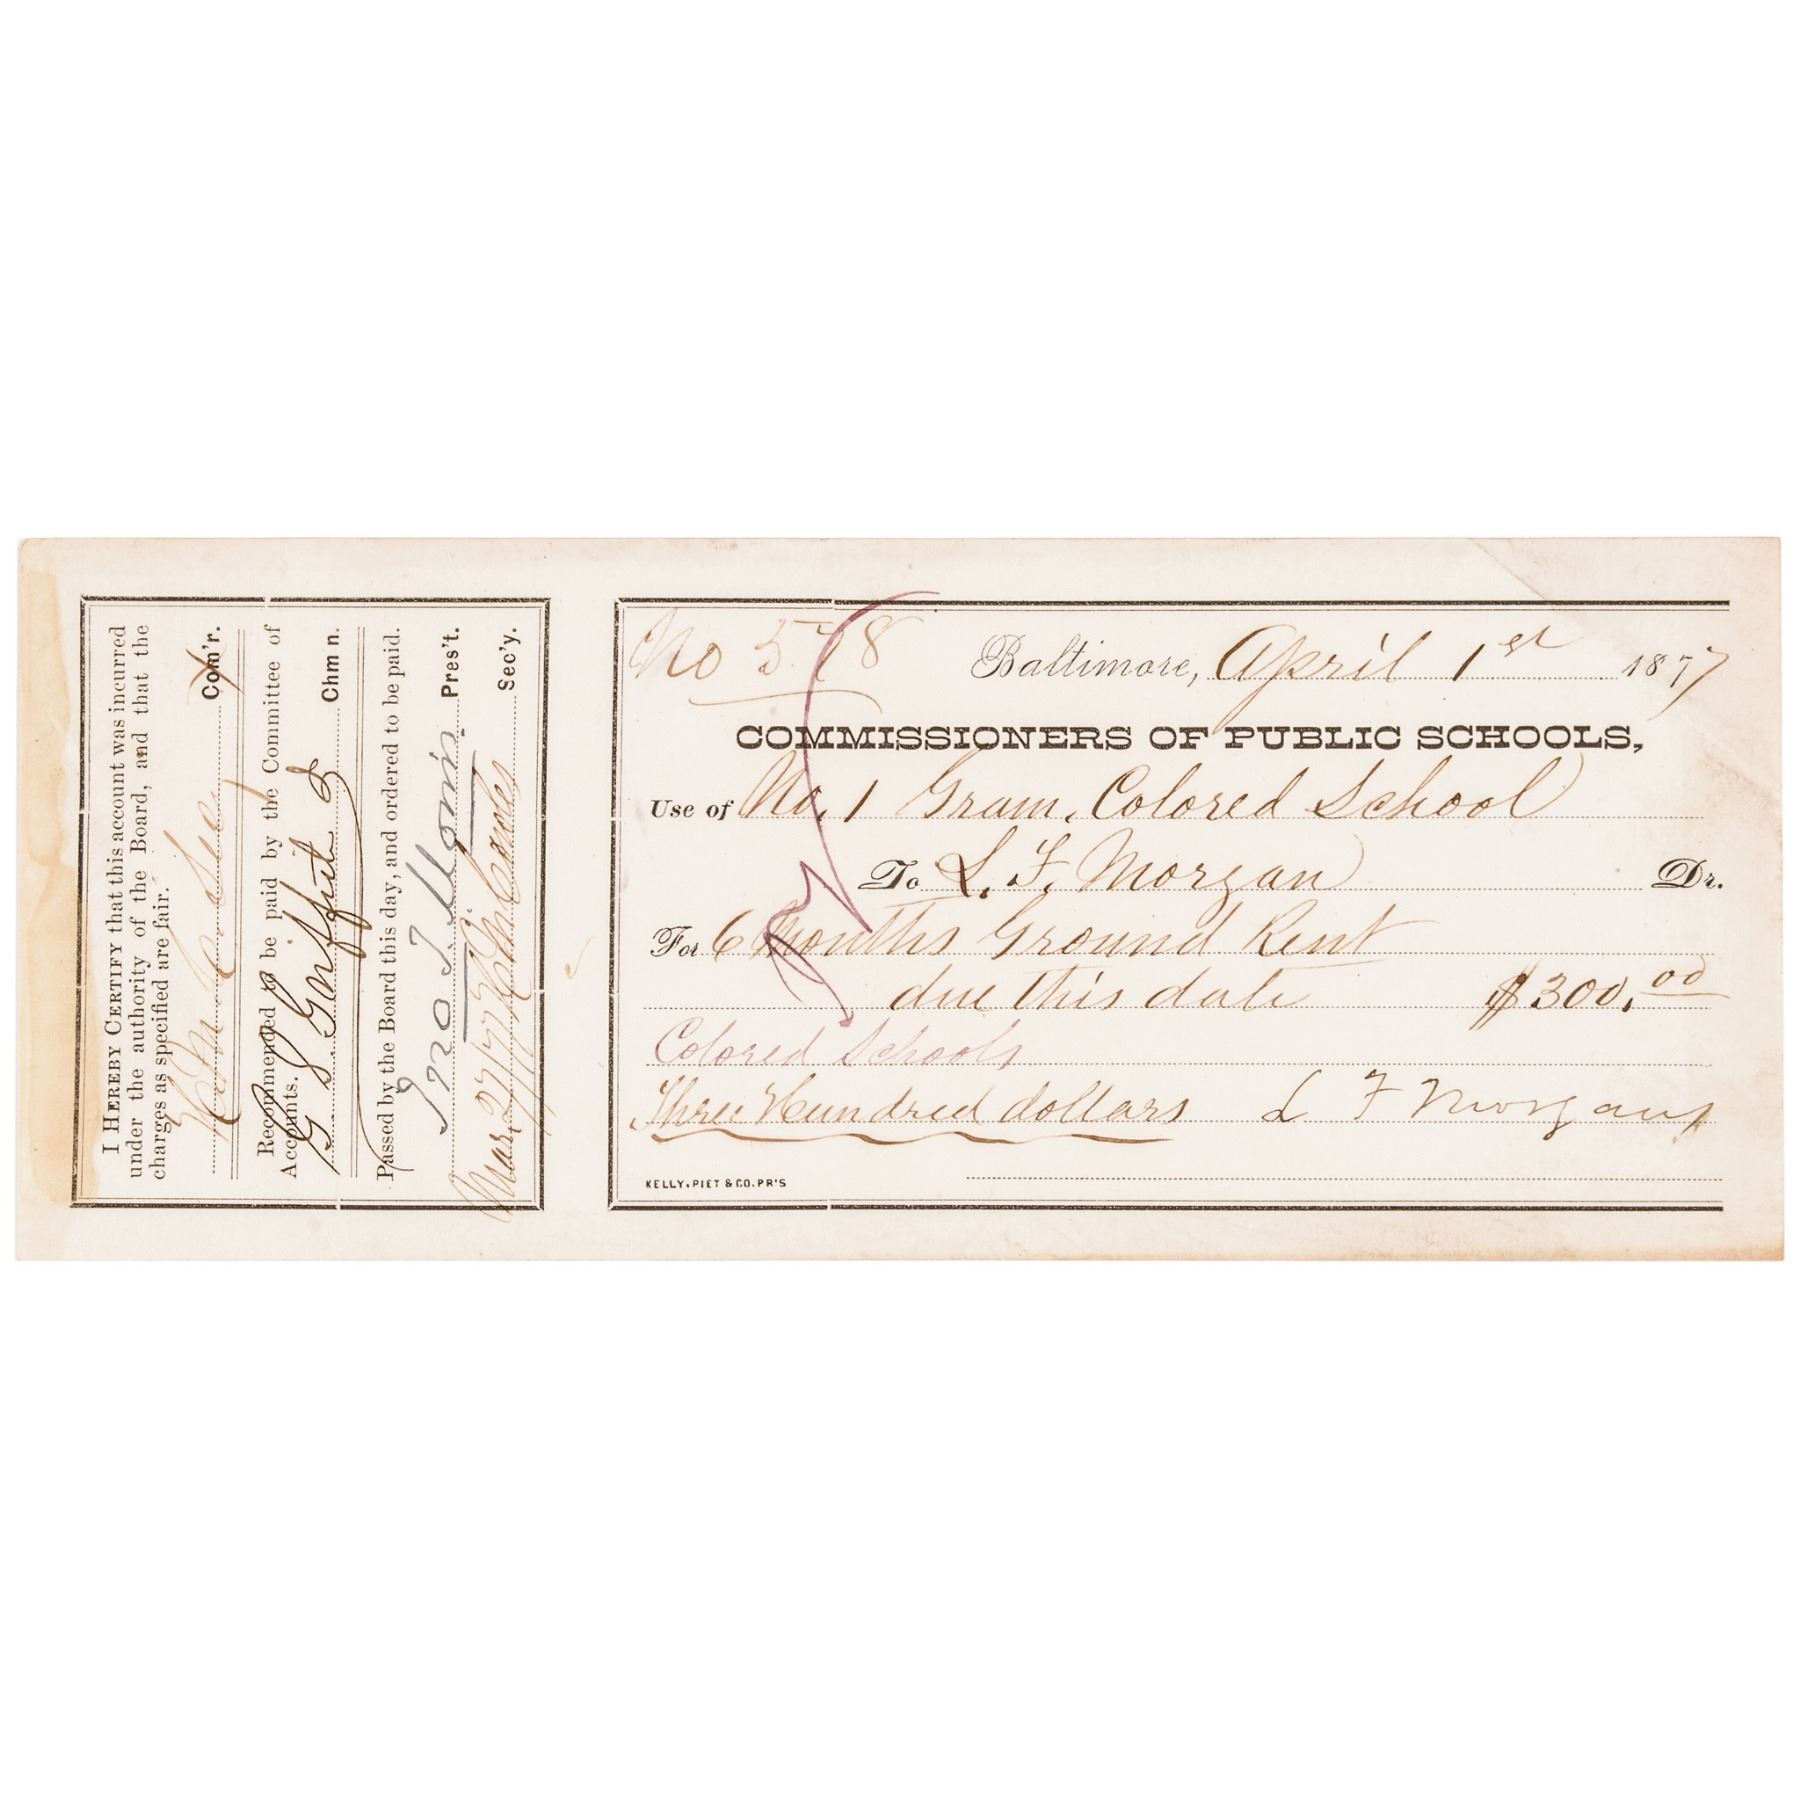 I HEREBY CERTIFY that this account was incurred
under the authority of the Board, and that the
charges as specified are fair.
Com'r.
Recommended to be paid by the Committee of
Accounts.
G S Griffith Chmn.
Passed by the Board this day, and ordered to be paid.
Jno T. Morris Pres't.
Mar. 27/77 Sec'y.
No 578
Baltimore, April 1st 1877
COMMISSIONERS OF PUBLIC SCHOOLS,
Use of No. 1 Gram. Colored School
To L. F. Morgan Dr.
For 6 Months Ground Rent
due this date $300.00
Colored Schools
Three Hundred dollars L F Morgan
KELLY, PIET & CO. PR'S